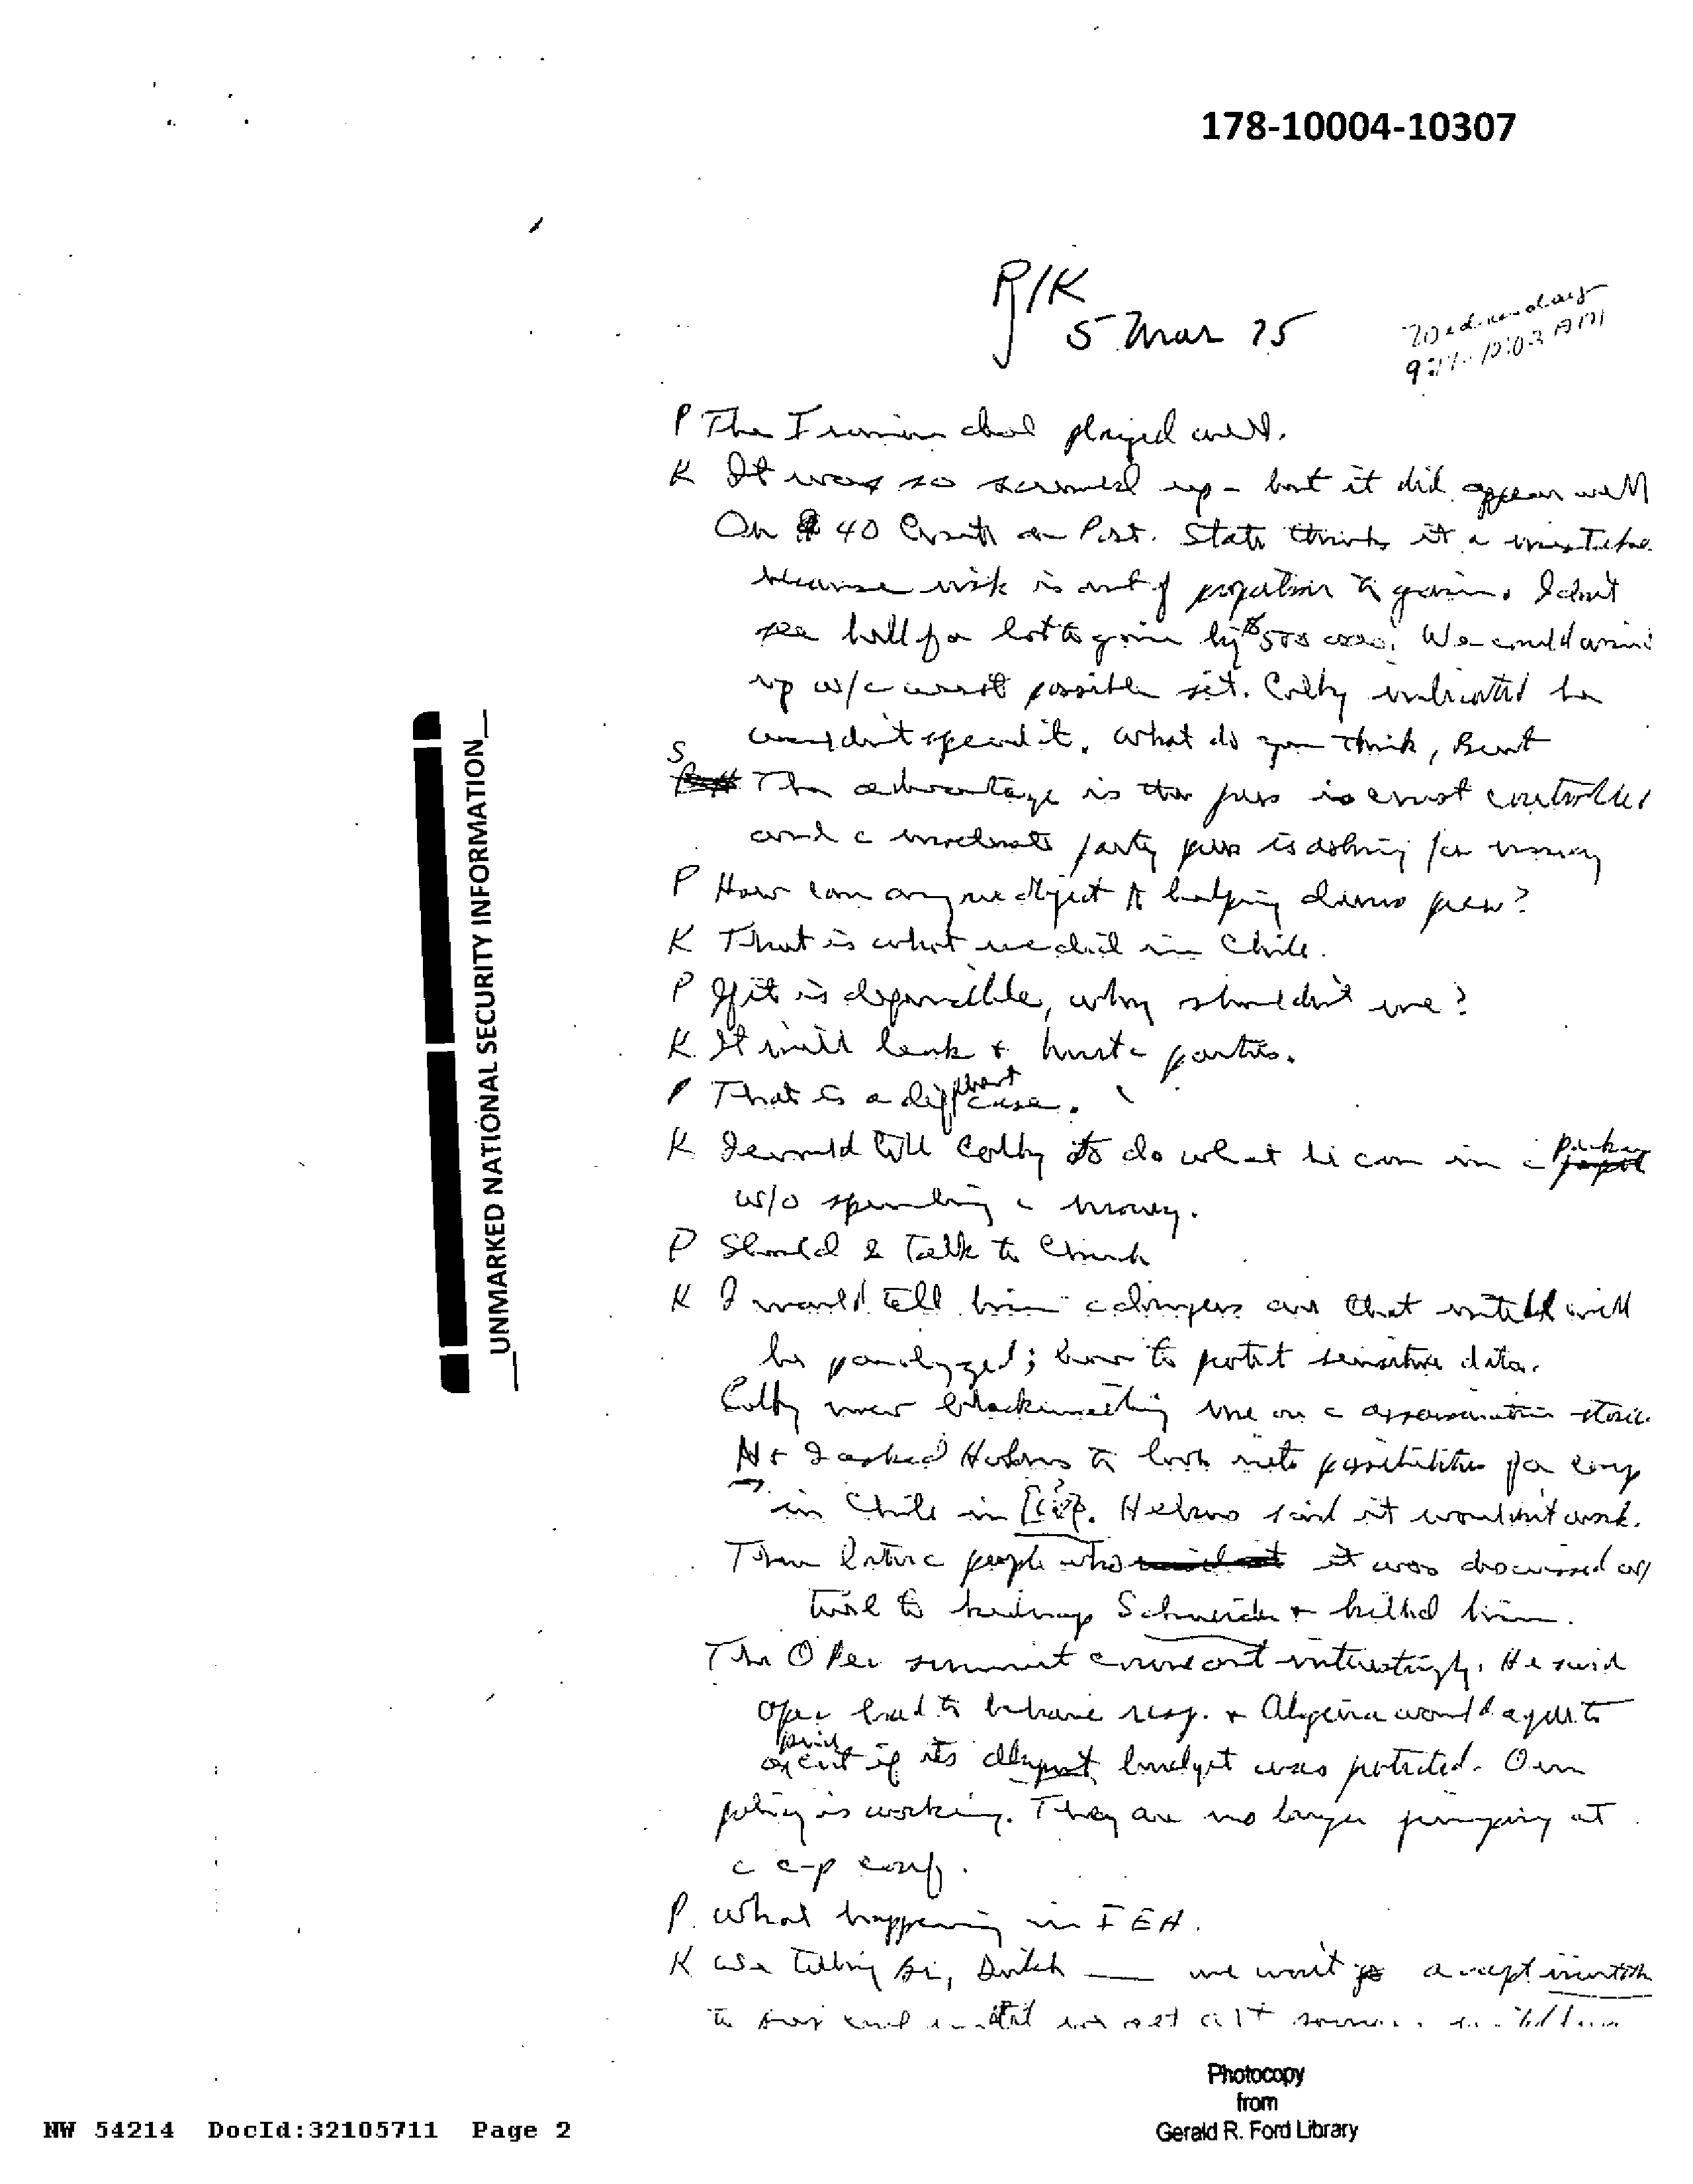 178-10004-10307
P/K
5 Mar 75
Wednesday
AM
P The Iranian deal played well.
K It was so screwed up - but it did appear well
On 40 Comte on Port. State thinks it a mistake
because risk is out of proportion to gain. I don't
see hell of a lot to gain by $500 000. We could wind
up w/c worst possible sit. Colby indicated he
wouldn't spend it. What do you think, Brent
S The advantage is the press is controlled
and c moderate party press is asking for money
P How can anyone object to helping press?
K That is what we did in Chile.
P If it is deniable, why shouldn't we?
K It will leak & hurt c parties.
P That is a different case.
K I would tell Colby to do what he can in c
w/o spending c money.
P Should I talk to Church
K I would tell him c dangers are that intell will
be paralyzed; how to protect sensitive data.
Colby now blackmailing me on c assassination stories
N & I asked Helms to look into possibilities for coup
in Chile in . Helms said it wouldn't work.
Then c people who it was discussed w/
tried to kidnap Schneider & killed him.
The Opec summit came out interestingly. He said
Opec had to behave resp. & Algeria would agree to
price if its budget was protected. Our
policy is working. They are no longer jumping at
c c-p conf.
P What happening in IEA.
K We telling Br, Dutch — we won't accept
to until we get alt
UNMARKED NATIONAL SECURITY INFORMATION
Photocopy
from
Gerald R. Ford Library
NW 54214 DocId:32105711 Page 2